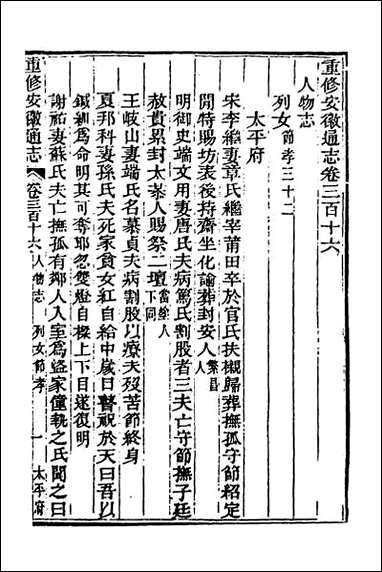 重修安徽通志卷三百十六
人物志
列女節孝三十二
太平府
宋李維妻章氏繼宰莆田卒於官氏扶櫬歸葬撫孤守節紹定
閒特賜坊表後持齋坐化諭葬封安人繁昌人
明御史端文用妻唐氏夫病篤氏割股者三夫亡守節撫子廷
赦貴累封太恭人賜祭二壇當塗人下同
王岐山妻端氏名慕貞夫病割股以療夫歿苦節終身
夏邦科妻孫氏夫死家貧女紅自給中歲目瞽祝於天曰吾以
鍼黹為命明其可奪耶忽雙燈自樑上下目遂復明
謝祐妻蘇氏夫亡撫孤有鄰人入室為盜家僮執之氏聞之曰
重修安徽通志
卷三百十六
人物志
列女節孝
一
太平府